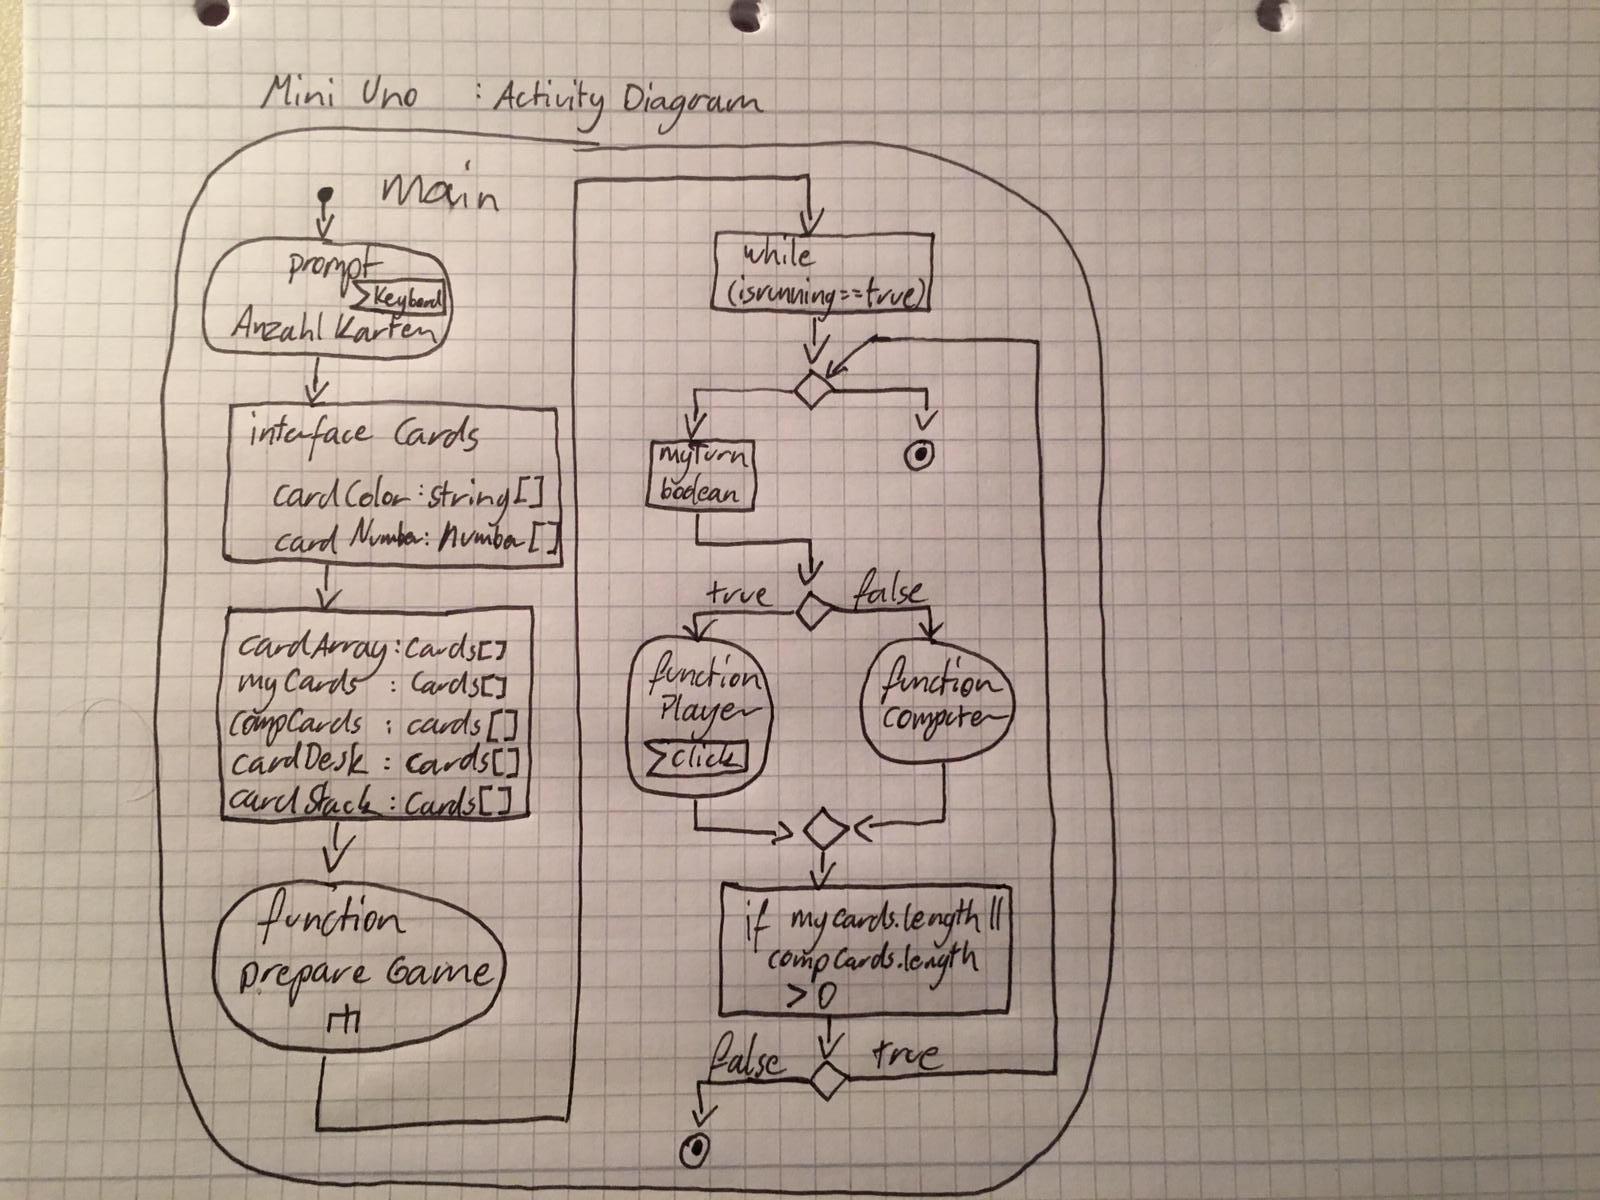 Mini Uno : Activity Diagram
main
prompt
Keyboard
Anzahl Karten
interface Cards
cardColor : string[]
card Number : Number[]
cardArray : Cards[]
myCards : Cards[]
compCards : cards[]
cardDesk : Cards[]
cardStack : Cards[]
function
prepare Game
while
(isrunning==true)
myTurn
boolean
true
false
function
Player
click
function
computer
if mycards.length ||
compCards.length
> 0
false
true